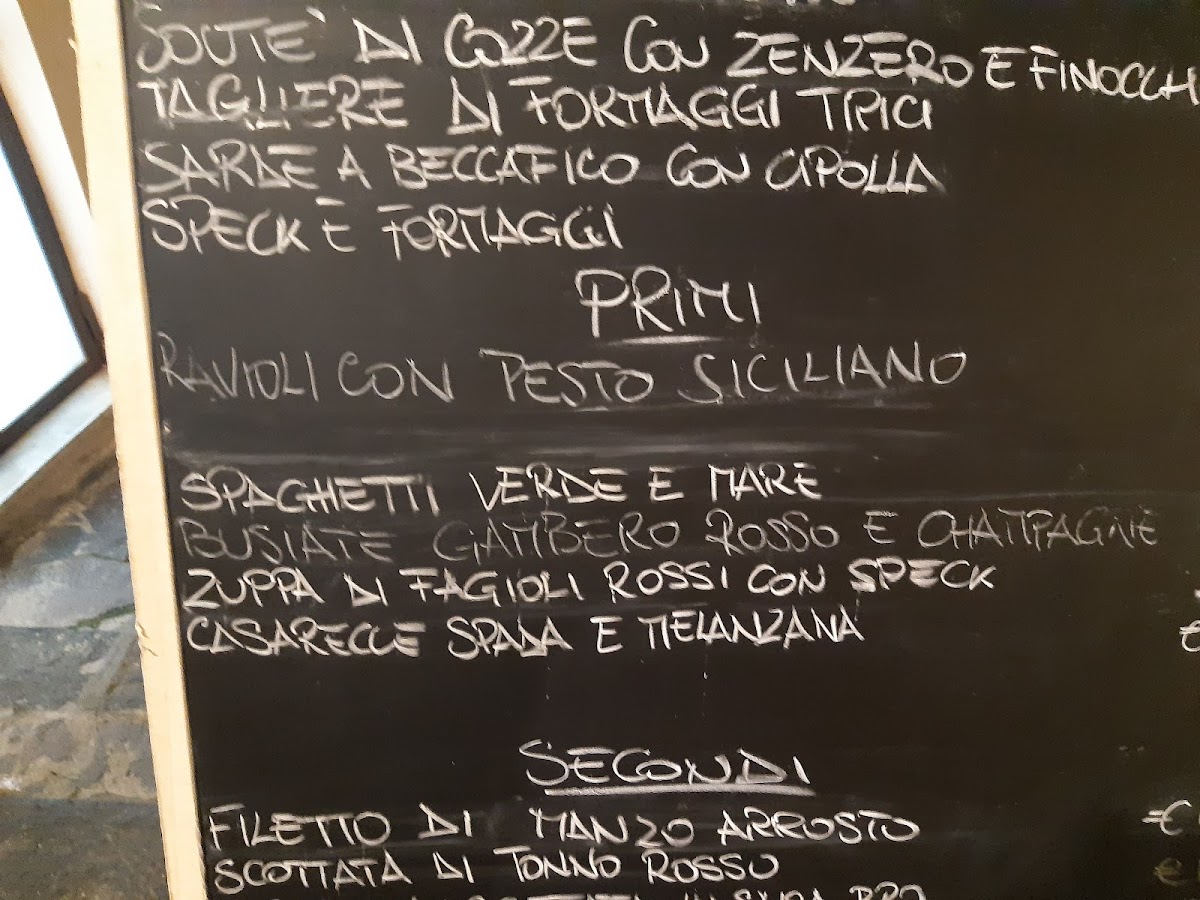 SOUTÈ DI COZZE CON ZENZERO E FINOCCHI
TAGLIERE DI FORMAGGI TIPICI
SARDE A BECCAFICO CON CIPOLLA
SPECK E FORMAGGI
PRIMI
RAVIOLI CON PESTO SICILIANO
SPAGHETTI VERDE E MARE
BUSIATE GAMBERO ROSSO E CHAMPAGNE
ZUPPA DI FAGIOLI ROSSI CON SPECK
CASARECCE SPADA E MELANZANA €
SECONDI
FILETTO DI MANZO ARROSTO €
SCOTTATA DI TONNO ROSSO €